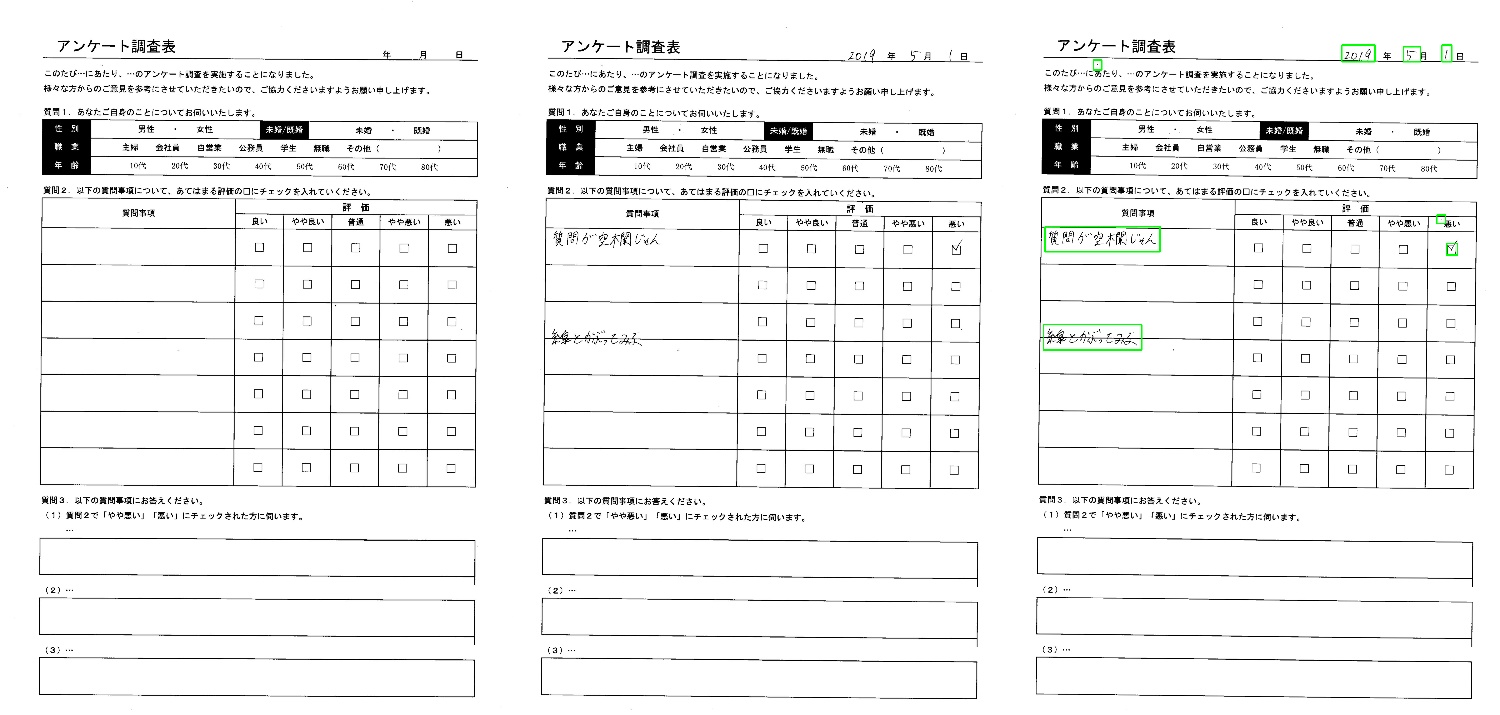 アンケート調査表
年 月 日
このたび…にあたり、…のアンケート調査を実施することになりました。
様々な方からのご意見を参考にさせていただきたいので、ご協力くださいますようお願い申し上げます。
質問1. あなたご自身のことについてお伺いいたします。
性 別 男性 ・ 女性 未婚/既婚 未婚 ・ 既婚
職 業 主婦 会社員 自営業 公務員 学生 無職 その他( )
年 齢 10代 20代 30代 40代 50代 60代 70代 80代
質問2. 以下の質問事項について、あてはまる評価の口にチェックを入れていください。
質問事項 評 価
良い やや良い 普通 やや悪い 悪い
質問3. 以下の質問事項にお答えください。
(1)質問2で「やや悪い」「悪い」にチェックされた方に伺います。
…
(2)…
(3)…
アンケート調査表
2019 年 5 月 1 日
このたび…にあたり、…のアンケート調査を実施することになりました。
様々な方からのご意見を参考にさせていただきたいので、ご協力くださいますようお願い申し上げます。
質問1. あなたご自身のことについてお伺いいたします。
性 別 男性 ・ 女性 未婚/既婚 未婚 ・ 既婚
職 業 主婦 会社員 自営業 公務員 学生 無職 その他( )
年 齢 10代 20代 30代 40代 50代 60代 70代 80代
質問2. 以下の質問事項について、あてはまる評価の口にチェックを入れていください。
質問事項 評 価
良い やや良い 普通 やや悪い 悪い
質問が空木欄じゃん
とかぶってみる
質問3. 以下の質問事項にお答えください。
(1)質問2で「やや悪い」「悪い」にチェックされた方に伺います。
…
(2)…
(3)…
アンケート調査表
2019 年 5 月 1 日
このたび…にあたり、…のアンケート調査を実施することになりました。
様々な方からのご意見を参考にさせていただきたいので、ご協力くださいますようお願い申し上げます。
質問1. あなたご自身のことについてお伺いいたします。
性 別 男性 ・ 女性 未婚/既婚 未婚 ・ 既婚
職 業 主婦 会社員 自営業 公務員 学生 無職 その他( )
年 齢 10代 20代 30代 40代 50代 60代 70代 80代
質問2. 以下の質問事項について、あてはまる評価の口にチェックを入れていください。
質問事項 評 価
良い やや良い 普通 やや悪い 悪い
質問が空木欄じゃん
とかぶってみる
質問3. 以下の質問事項にお答えください。
(1)質問2で「やや悪い」「悪い」にチェックされた方に伺います。
…
(2)…
(3)…